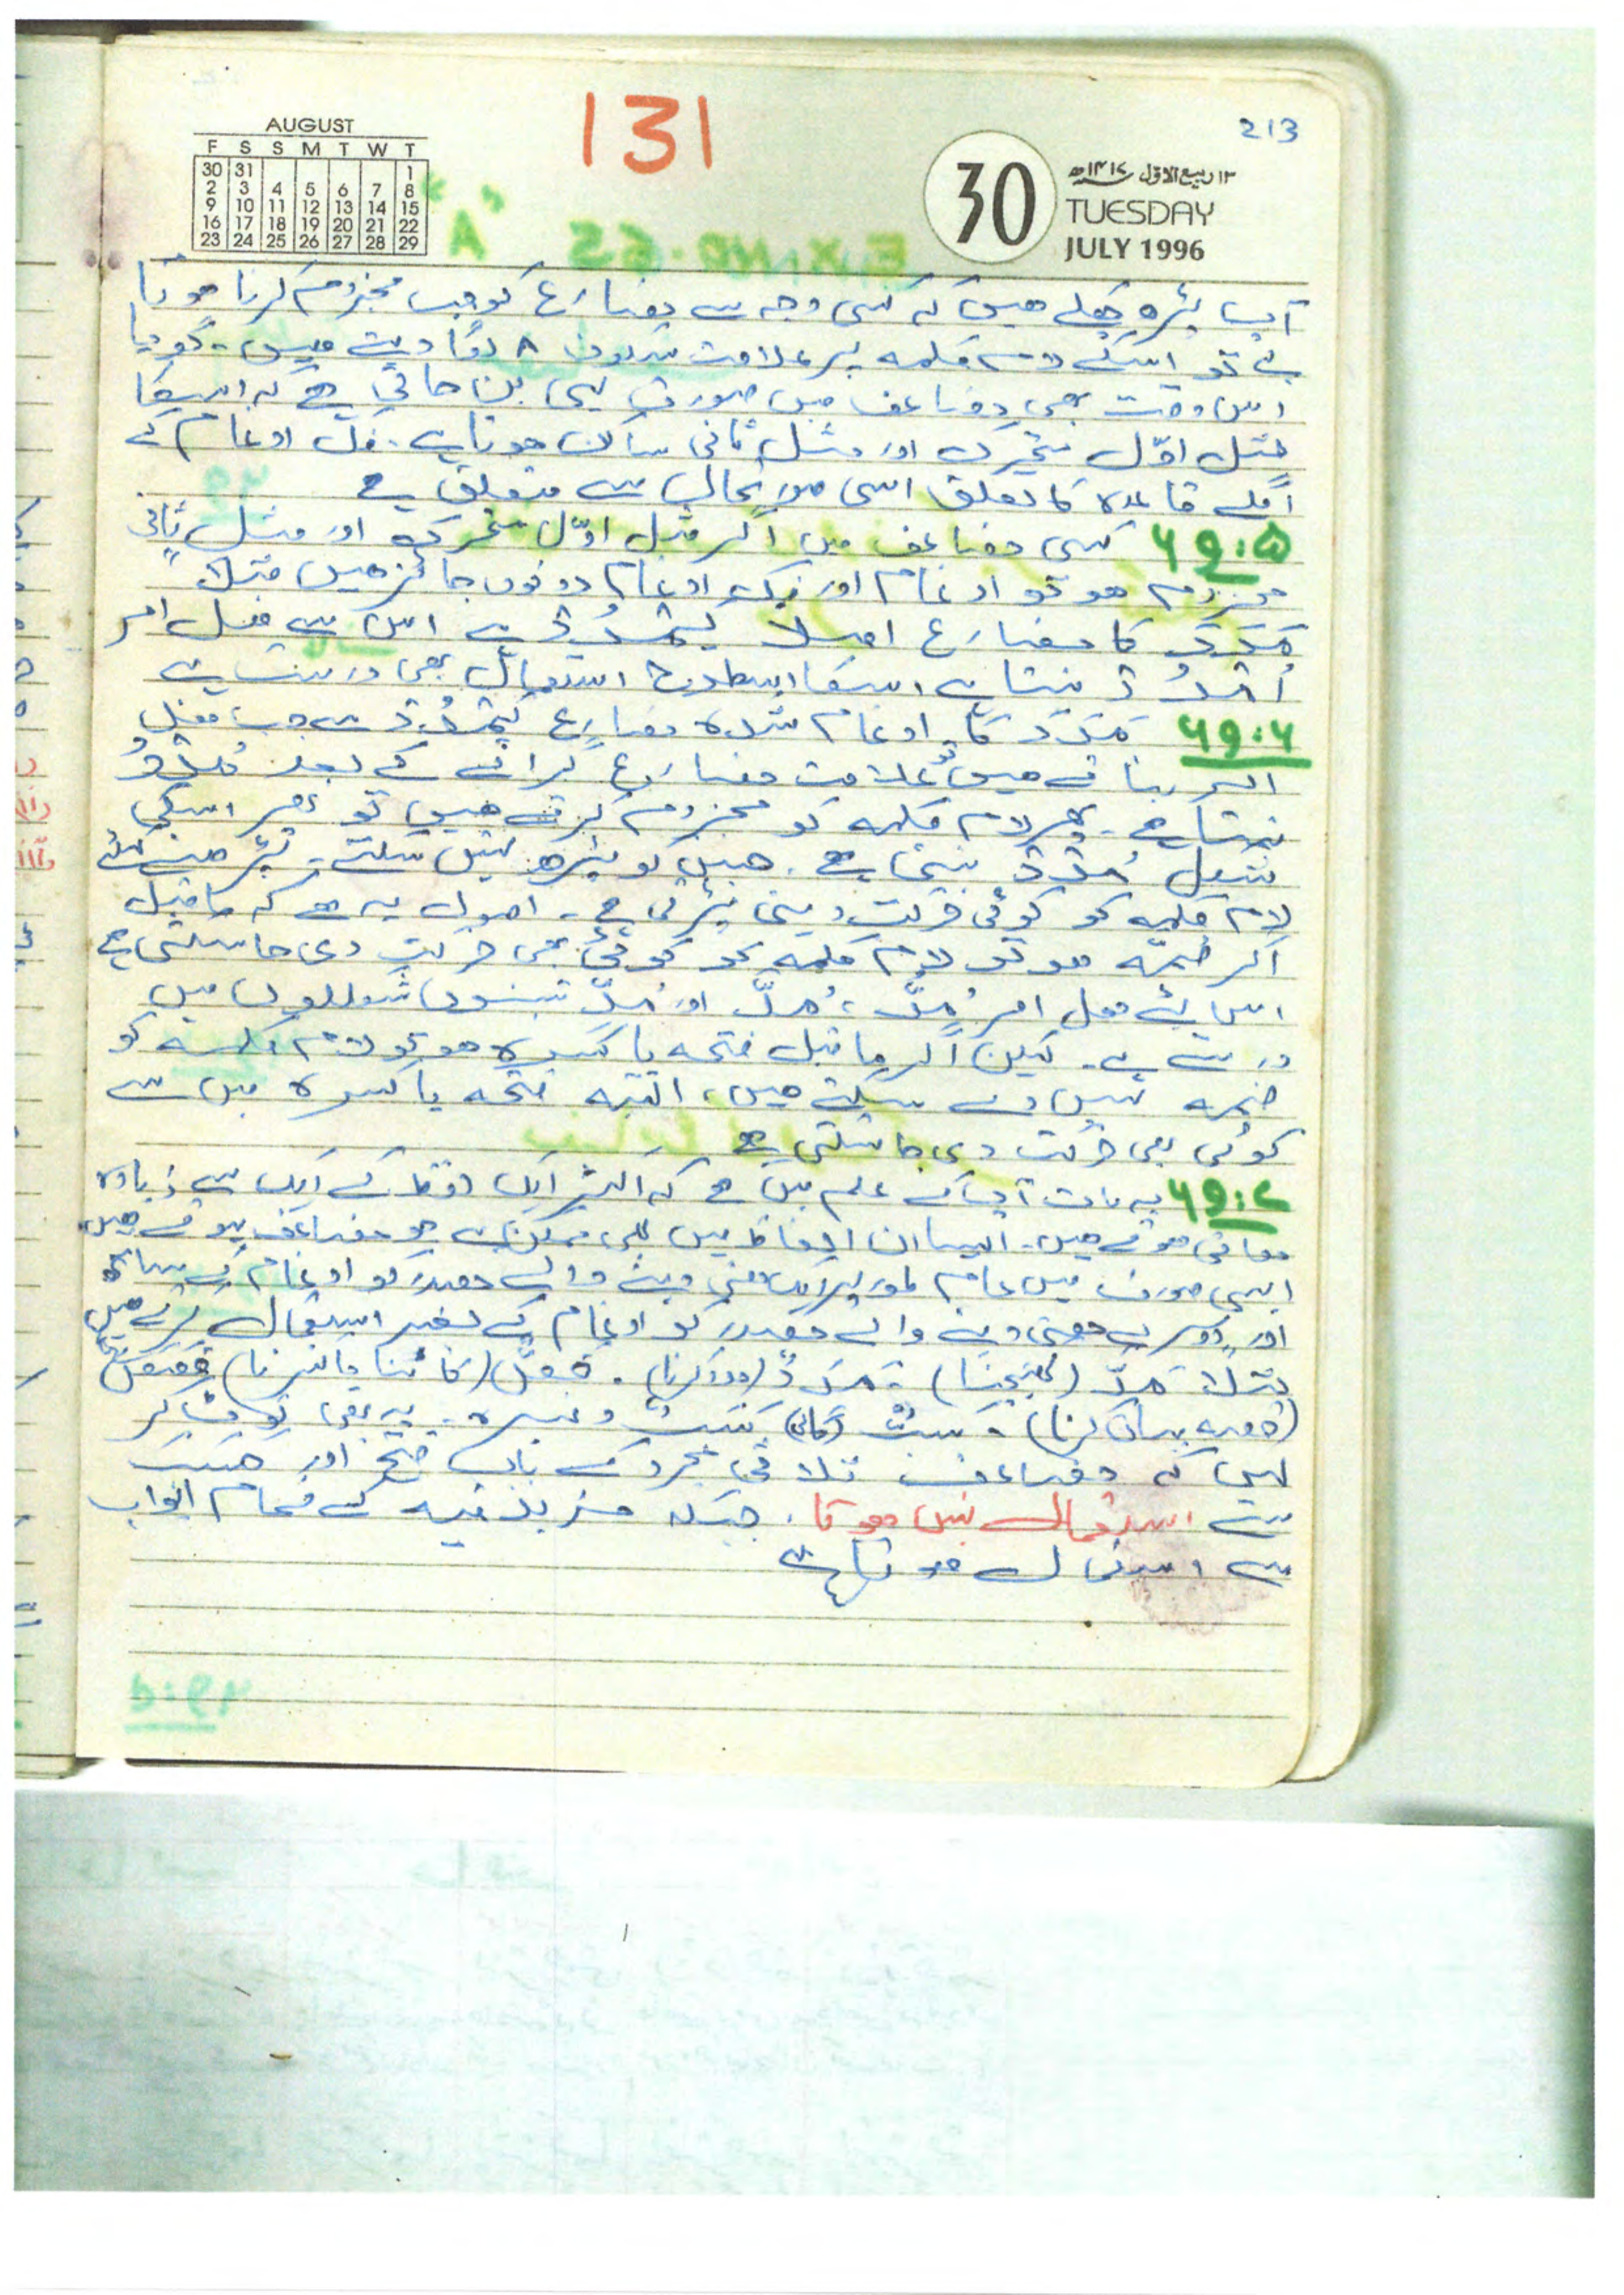 213
131
AUGUST
F S S M T W T
30 31 1
2 3 4 5 6 7 8
9 10 11 12 13 14 15
16 17 18 19 20 21 22
23 24 25 26 27 28 29
30
۱۳ ربیع الاول ۱۴۱۷ھ
TUESDAY
JULY 1996
آپ پڑھ چکے ھیں کہ کسی وجہ سے مضارع کو جب مجزوم کرنا ہوتا
ہے تو اسکے لام کلمہ پر علامت سکون ۸ لگا دیتے ھیں۔ گویا
اس وقت بھی مضاعف میں صورت یہی بن جاتی ہے کہ اسکا
مثل اوّل متحرک اور مثل ثانی ساکن ہوتا ہے۔ فکّ ادغام کے
اگلے قاعدہ کا تعلق اسی صورتحال سے متعلق ہے
۶۹:۵ کسی مضاعف میں اگر مثل اوّل متحرک اور مثل ثانی
مجزوم ھو تو ادغام اور فک ادغام دونوں جائز ھیں مثلاً
مَدَدَ کا مضارع اصلاً یَمْدُدُ ہے اس سے فعل امر
اُمْدُدْ بنتا ہے اسکا اسطرح استعمال بھی درست ہے
۶۹:۶ مَدَدَ کا ادغام شدہ مضارع یَمُدُّ سے جب فعل
امر بناتے ھیں تو علامت مضارع گرانے کے بعد مُدْدُ
بنتا ہے۔ پھر لام کلمہ کو مجزوم کرتے ھیں تو پھر اسکی
شکل مُدْدْ بنتی ہے۔ جس کو پڑھ نہیں سکتے۔ پڑھنے کیلئے
لام کلمہ کو کوئی حرکت دینی پڑتی ہے۔ اصول یہ ہے کہ ماقبل
اگر ضمّہ ھو تو لام کلمہ کو کوئی بھی حرکت دی جا سکتی ہے
اس لئے فعل امر مُدَّ ، مُدُّ اور مُدِّ تینوں شکلوں میں
درست ہے۔ لیکن اگر ماقبل فتحہ یا کسرہ ھو تو لام کلمہ کو
ضمہ نہیں دے سکتے ھیں، البتہ فتحہ یا کسرہ میں سے
کوئی بھی حرکت دی جا سکتی ہے
۶۹:۷ یہ بات آپ کے علم میں ہے کہ اکثر ایک لفظ کے ایک سے زیادہ
معانی ہوتے ھیں۔ ایسا ان الفاظ میں بھی ممکن ہے جو مضاعف ہوتے ھیں
ایسی صورت میں عام طور پر ایک معنی دینے والے مصدر کو ادغام کے ساتھ
اور دوسرے معنی دینے والے مصدر کو ادغام کے بغیر استعمال کرتے ھیں
مثلاً مَدٌّ (کھینچنا) مَدَدٌ (مدد کرنا)۔ قَصٌّ (کاٹنا یا کترنا) قَصَصٌ
(قصہ بیان کرنا)۔ سَبٌّ (گالی) سَبَبٌ وغیرہ۔ یہ بھی نوٹ کر
لیں کہ مضاعف ثلاثی مجرد کے باب فتح اور حسب
سے استعمال نہیں ھوتا۔ جبکہ مزید فیہ کے تمام ابواب
سے استعمال ھوتا ہے